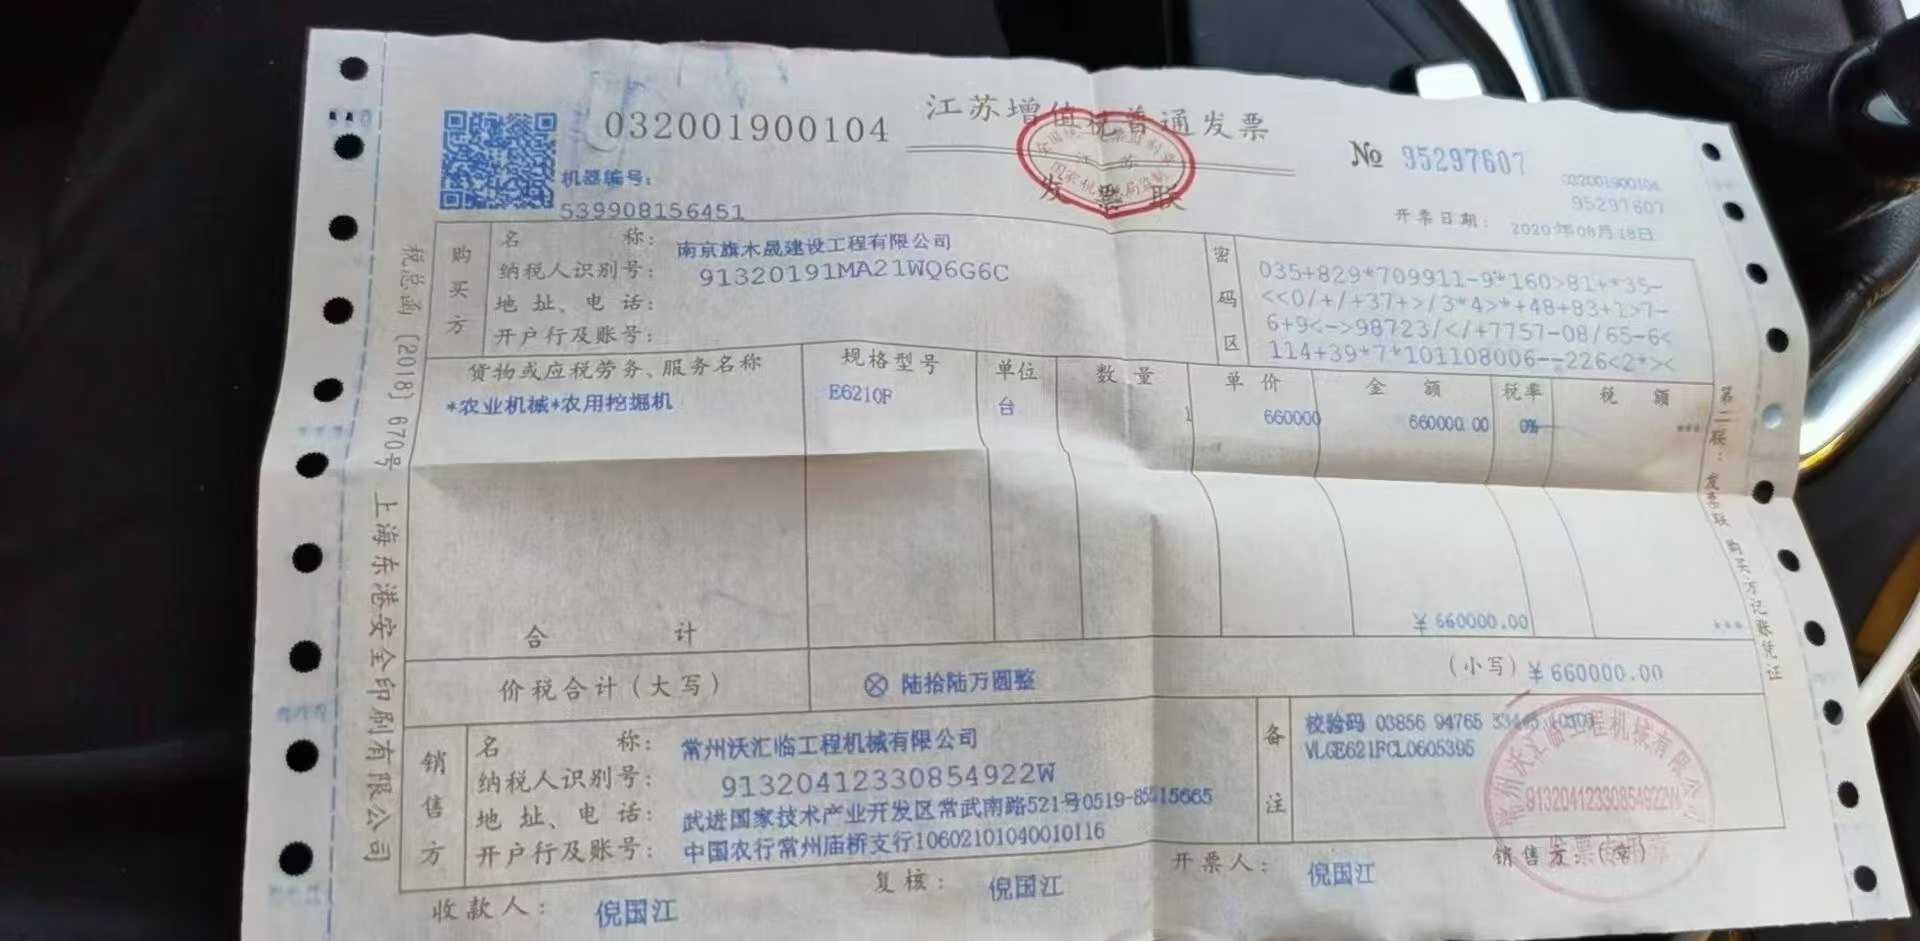 江苏增值税普通发票
032001900104
发票联
№ 95297607
032001900104
95297607
机器编号:
539908156451
开票日期: 2020年08月18日
税总函〔2018〕670号 上海东港安全印刷有限公司
购买方
名 称: 南京旗木晟建设工程有限公司
纳税人识别号: 91320191MA21WQ6G6C
地 址、电 话:
开户行及账号:
密码区
035+829*709911-9*160>81+*35-
<<0/+/+37+>/3*4>*+48+83+1>7-
6+9<->98723/</+7757-08/65-6<
114+39*7*101108006--226<2*><
货物或应税劳务、服务名称 规格型号 单位 数量 单价 金额 税率 税额
*农业机械*农用挖掘机 E6210F 台 1 660000 660000.00 0% ***
合 计 ¥660000.00 ***
价税合计(大写) ⊗ 陆拾陆万圆整 (小写) ¥660000.00
销售方
名 称: 常州沃汇临工程机械有限公司
纳税人识别号: 91320412330854922W
地 址、电 话: 武进国家技术产业开发区常武南路521号0519-85515665
开户行及账号: 中国农行常州庙桥支行10602101040010116
备注
校验码 03856 94765
VLGE621FCL0605395
91320412330854922W
收款人: 倪国江
复核: 倪国江
开票人: 倪国江
销售方:(章)
第二联:发票联 购买方记账凭证